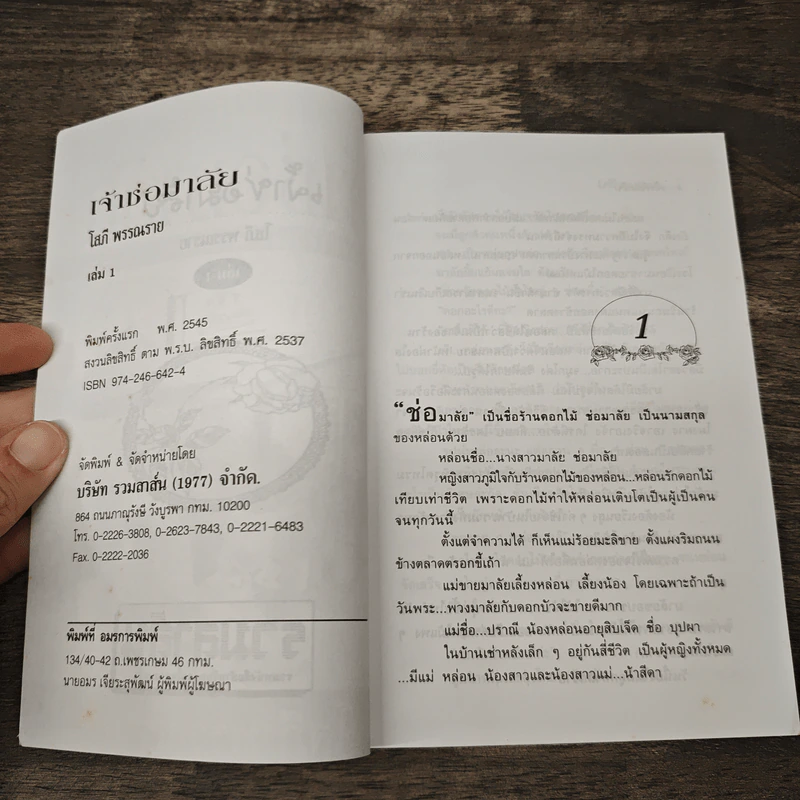 เจ้าช่อมาลัย
โสภี พรรณราย
เล่ม 1
พิมพ์ครั้งแรก พ.ศ. 2545
สงวนลิขสิทธิ์ ตาม พ.ร.บ. ลิขสิทธิ์ พ.ศ. 2537
ISBN 974-246-642-4
จัดพิมพ์ & จัดจำหน่ายโดย
บริษัท รวมสาส์น (1977) จำกัด.
864 ถนนภาณุรังษี วังบูรพา กทม. 10200
โทร. 0-2226-3808, 0-2623-7843, 0-2221-6483
Fax. 0-2222-2036
พิมพ์ที่ อมรการพิมพ์
134/40-42 ถ.เพชรเกษม 46 กทม.
นายอมร เจียระสุพัฒน์ ผู้พิมพ์ผู้โฆษณา
1
“ช่อมาลัย” เป็นชื่อร้านดอกไม้ ช่อมาลัย เป็นนามสกุล
ของหล่อนด้วย
หล่อนชื่อ...นางสาวมาลัย ช่อมาลัย
หญิงสาวภูมิใจกับร้านดอกไม้ของหล่อน...หล่อนรักดอกไม้
เทียบเท่าชีวิต เพราะดอกไม้ทำให้หล่อนเติบโตเป็นผู้เป็นคน
จนทุกวันนี้
ตั้งแต่จำความได้ ก็เห็นแม่ร้อยมะลิขาย ตั้งแผงริมถนน
ข้างตลาดตรอกขี้เถ้า
แม่ขายมาลัยเลี้ยงหล่อน เลี้ยงน้อง โดยเฉพาะถ้าเป็น
วันพระ...พวงมาลัยกับดอกบัวจะขายดีมาก
แม่ชื่อ...ปราณี น้องหล่อนอายุสิบเจ็ด ชื่อ บุปผา
ในบ้านเช่าหลังเล็ก ๆ อยู่กันสี่ชีวิต เป็นผู้หญิงทั้งหมด
...มีแม่ หล่อน น้องสาวและน้องสาวแม่...น้าสีดา